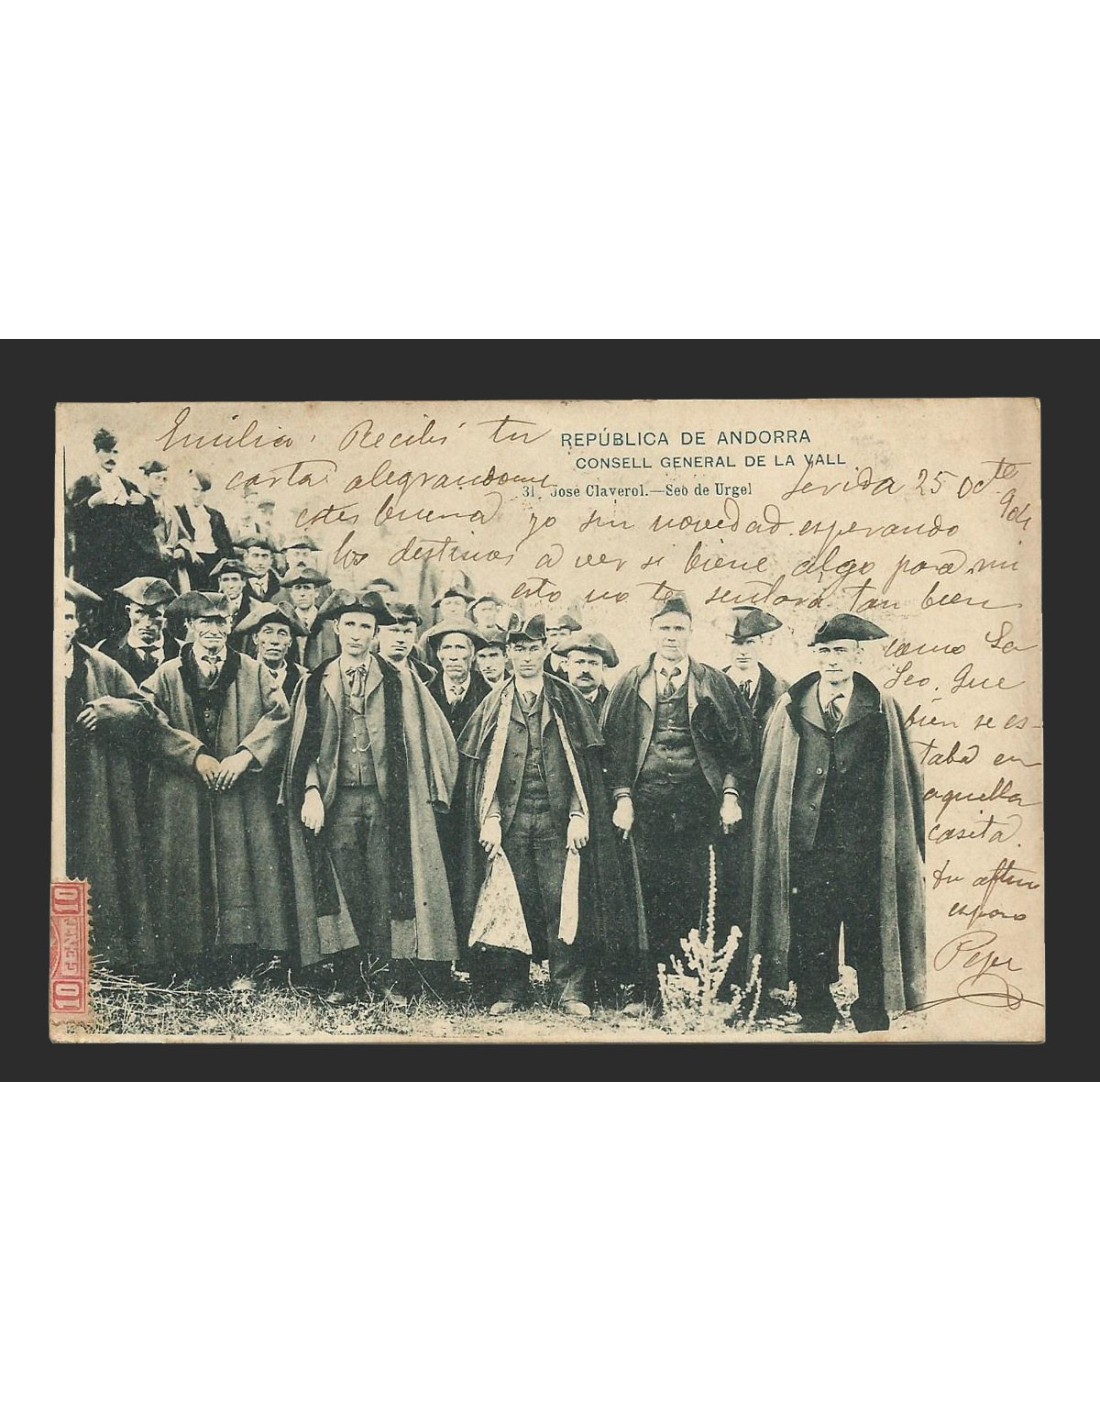 REPÚBLICA DE ANDORRA
CONSELL GENERAL DE LA VALL
31. José Claverol.—Seo de Urgel
Lerida 25 Octe
904
Emilia: Recibi tu
carta alegrandome
estes buena yo sin novedad esperando
los destinos a ver si biene algo para mi
esto no te sentara tan bien
como La
Seo. Que
bien se es-
taba en
aquella
casita.
tu aftmo
esposo
Pepe
10 CENT 10